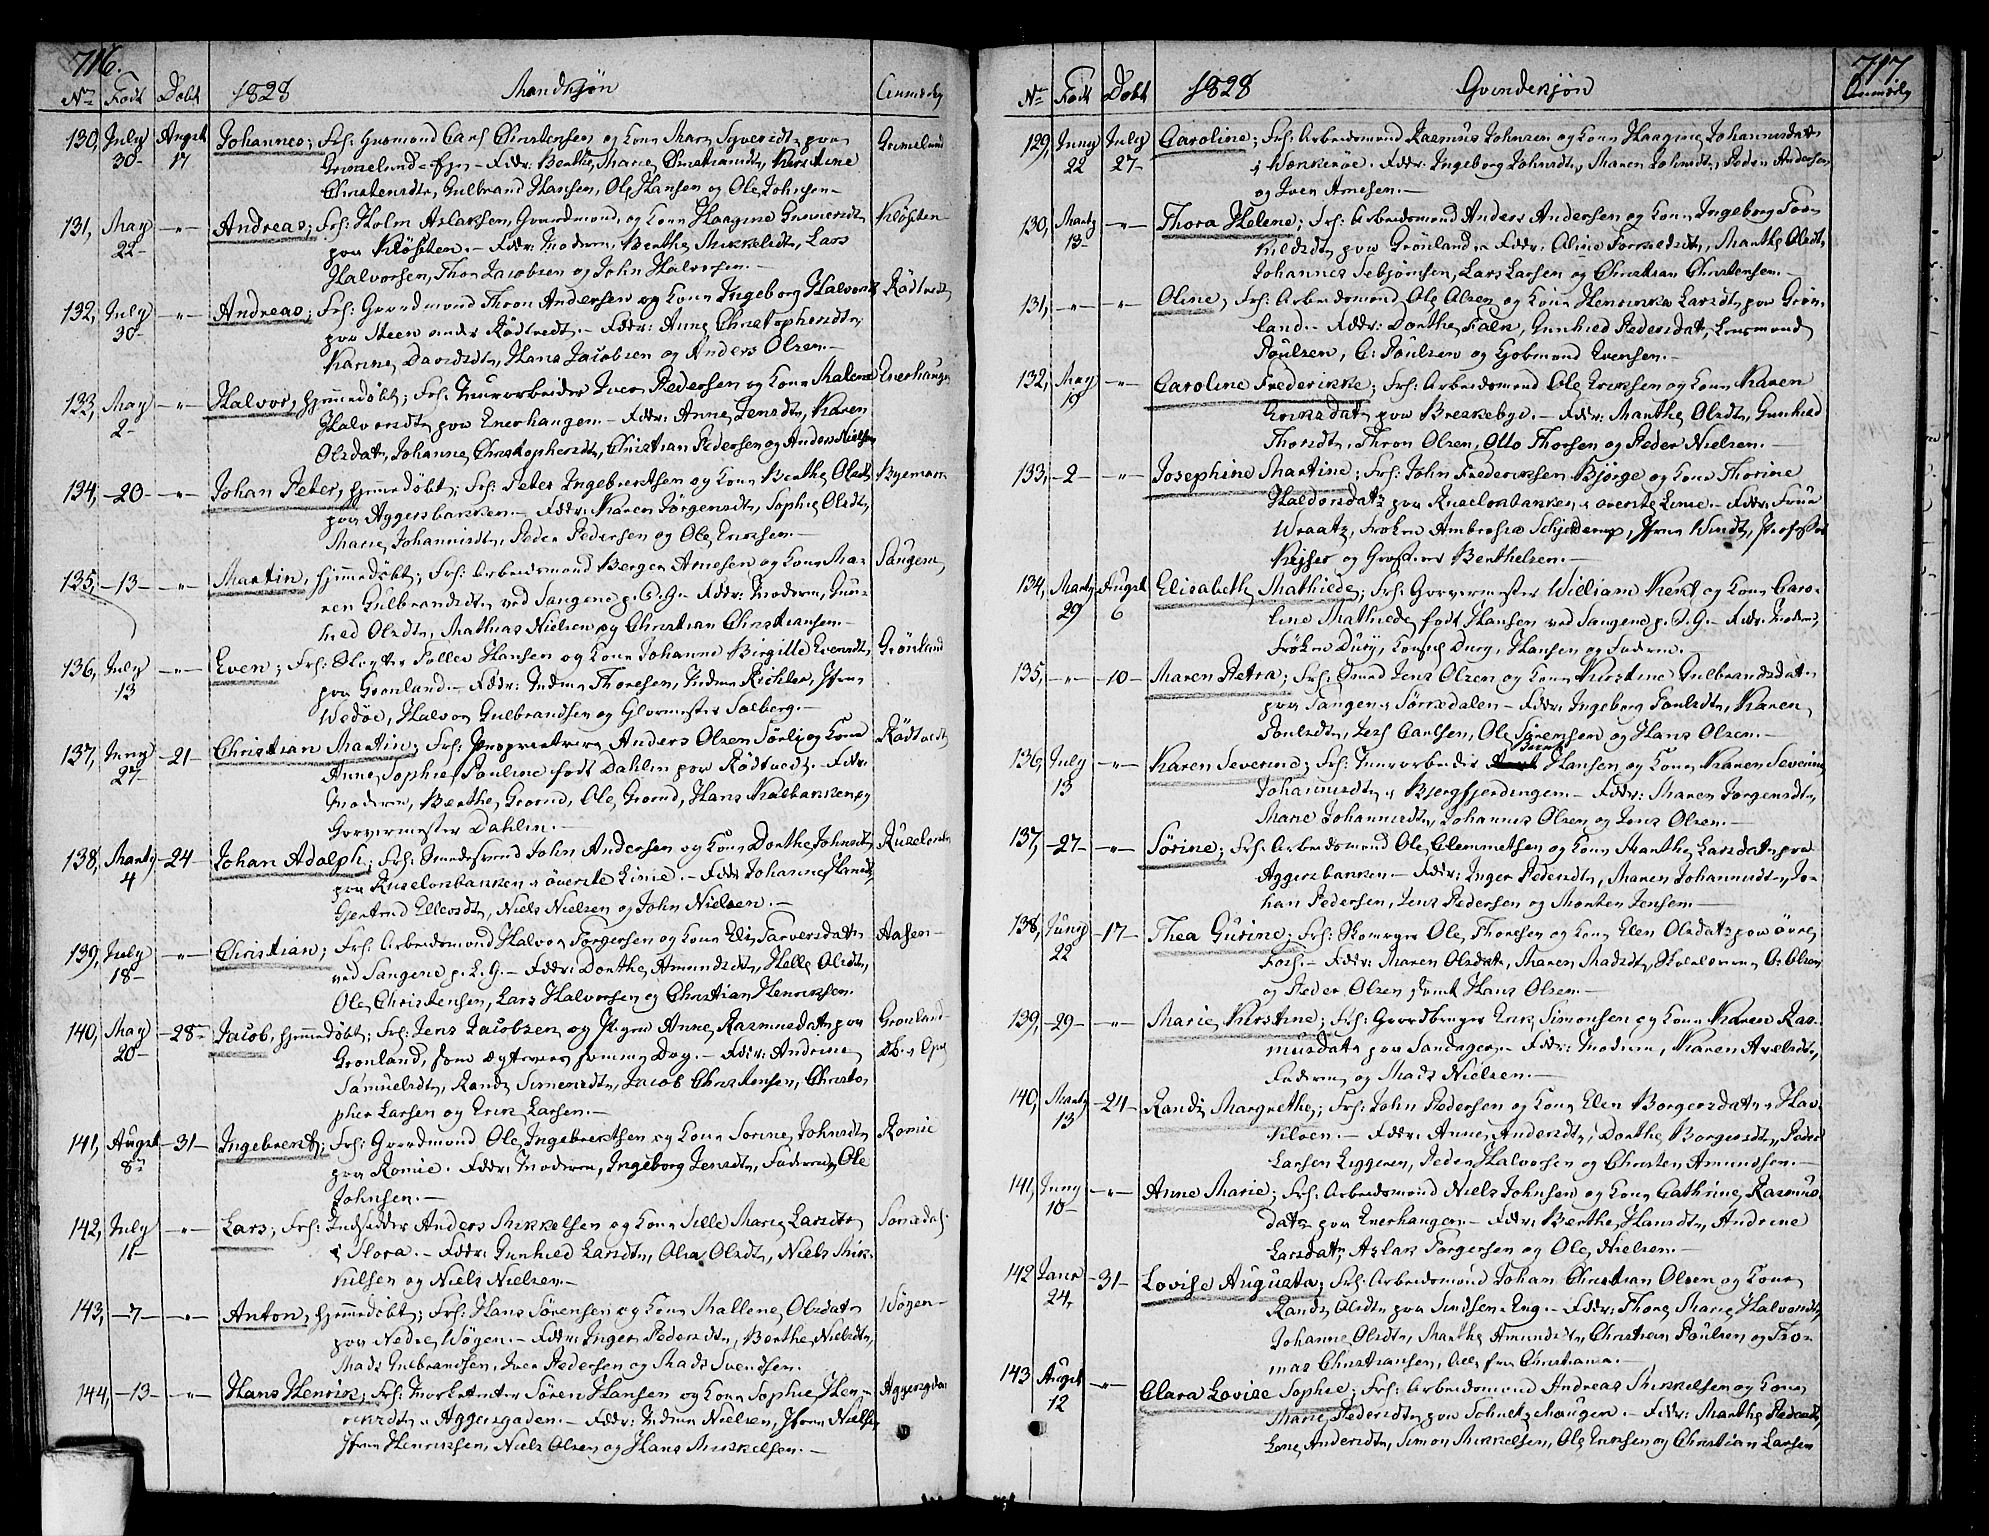 716.
No Født Døbt 1828 Mandkjøn Anmærk
130, July 30 August 17 Johannes; Frs: Huusmand Carl Christensen og Kone Maren Syversdt paa Grimelund
Grimelund Eje - Fddr: Berthe Marie Christiansdt, Kirstine
Christensdt, Gulbrand Hansen, Ole Hansen og Ole Johnsen.
131, May 22 -"- Andreas; Frs: Holm Aslaksen, Gaardmand, og Kone Haagine Gunnersdt Kløften
paa Kløften. - Fddr: Moderen, Berthe Mikkelsdt, Lars
Halvorsen, Thor Jacobsen og John Halvorsen.
132, July 30 -"- Andreas; Frs: Gaardmand Thron Andersen og Kone Ingeborg Halvorsdt Rødtvedt
paa Steen under Rødtvedt. - Fddr: Anne Christophersdt,
Karine Davidsdt, Hans Jacobsen og Anders Olsen.
133, May 2 -"- Halvor, hjemmedøbt; Frs: Muurarbeider Iver Pedersen og Kone Malene Enerhaugn
Halvorsdt paa Enerhaugen - Fddr: Anne Jensdt, Karen
Olsdatr, Johanne Christophersdt, Christian Pedersen og Anders Nielsen
134, -20- -"- Johan Peter, hjemmedøbt; Frs: Peter Ingebretsen og Kone Berthe Olsdt Bymark
paa Aggersbakken. - Fddr: Karen Jørgensdt, Sophie Olsdt,
Marie Johannisdt, Peder Pedersen og Ole Eriksen.
135, -13- -"- Martin, hjemmedøbt; Frs: Arbeidsmand Berger Arnesen og Kone Ma- Saugene
ren Gulbrandsdt ved Saugene p. O. G. - Fddr: Moderen, Gun-
hild Olsdt, Mathias Nielsen og Christian Christiansen.
136, July 13 -"- Even; Frs: Slagter Peller Hansen og Kone Johanne Birgitte Evensdt, Grønland
paa Grønland. - Fddr: Madme Thoresen, Madme Richter, Hrr
Wedøe, Halvor Gulbrandsen og Glarmester Solberg.
137, Juny 27 -21- Christian Martin; Frs: Proprietair Anders Olsen Sørlie og Kone Rødtvedt
Anne Sophie Pauline født Dahlin paa Rødtvedt. - Fddr:
Moderen, Berthe Grorud, Ole Grorud, Hans Kalbakken og
Garvermester Dahlin.
138, Marty 4 -24- Johan Adolph; Frs: Huusmand John Andersen og Kone Dorthe Johnsdt Ruseløkn
paa Ruseløkbakken i øverste Linie. - Fddr: Johanne Hansdt,
Gjertrud Ellevsdt, Niels Nielsen og John Nielsen.
139, July 18 -"- Christian; Frs: Arbeidsmand Halvor Torgersen og Kone Eli Tarversdatr Aasen
ved Saugene p. L. G. - Fddr: Dorthe Amundsdt, Helle Olsdt,
Ole Christensen, Lars Halvorsen og Christian Henriksen.
140, May 20 -28- Jacob, hjemmedøbt; Frs: Jens Jacobsen og Pigen Anne Rasmusdatr paa Grønland
Grønland, som ægtevies samme Dag. - Fddr: Andrine
Samuelsdt, Randi Simensdt, Jacob Christensen, Christo
pher Larsen og Erik Larsen.
141, August 8 -31- Ingebreth; Frs: Gaardmand Ole Ingebrethsen og Kone Sorine Johnsdt Romie
paa Romie. Fddr: Moderen, Ingeborg Jensdt, Faderen, Ole
Johnsen.
142, July 11 -"- Lars; Frs: Indsidder Anders Mikkelsen og Kone Sille Marie Larsdt Sørkedal
i Flora. - Fddr: Gunhild Larsdt, Olia Olsdt, Niels Mik-
kelsen og Niels Nielsen.
143, -7- -"- Anton, hjemmedøbt; Frs: Hans Sørensen og Kone Mallene Olsdatr Wøyen
paa Nedre Wøyen. - Fddr: Inger Pedersdt, Berthe Nielsdt,
Mads Gulbrandsen, Iver Pedersen og Mads Svendsen.
144, -13- -"- Hans Henrik; Frs: Marketenter Sören Hansen og Kone Sophie Hen- Aggersgdn
riksdt i Aggersgaden. - Fddr: Madme Nielsen, Hrr Nielsen,
Hrr Henriksen, Niels Olsen og Hans Mikkelsen.
717.
No Født Døbt 1828 Qvindekjøn Anmærk
129, Juny 22 July 27 Caroline; Frs: Arbeidsmand Rasmus Johnsen og Kone Haagine Johannisdatr
i Wækkerøe. Fddr: Ingeborg Johnsdt, Maren Johnsdt, Peder Andersen
og Iver Arnesen.
130, Marty 13 -"- Thora Helene; Frs: Arbeidsmand Anders Andersen og Kone Ingeborg Tor-
kildsdt paa Grønland. Fddr: Oline Torkildsdt, Marthe Olsdt,
Johannes Sebjørnsen, Lars Larsen og Christian Christensen.
131, -"- -"- Oline; Frs: Arbeidsmand Ole Olsen og Kone Henrikke Larsdt paa Grøn-
land. - Fddr: Dorthe Falk, Gunhild Pedersdatr, Lensmand
Poulsen, C: Poulsen og Kjøbmand Evensen.
132, May 19 -"- Caroline Frederikke; Frs: Arbeidsmand Ole Eriksen og Kone Karen
Eriksdatr paa Brækkebye. - Fddr: Marthe Olsdt, Gunhild
Thorsdt, Thron Olsen, Otto Thorsen og Peder Nielsen.
133, -2- -"- Josephine Martine; Frs: John Frederiksen Bjørge og Kone Thorine
Haldorsdatr paa Ruseløkbakken i øverste Linie. - Fddr: Frue
Wraatz, Frøken Ambrosia Schjelderup, Hrr Windt, Professor
Keyser og Grosserer Berthelsen.
134, Marty 29 August 6 Elisabeth Mathilde; Frs: Garvermester William Kent og Kone Caro-
line Mathilde født Hansen ved Saugene p. O. G. - Fddr: Moderen,
Frøken Duey, Consul Duey, Hansen og Faderen.
135, -"- -10- Maren Petra; Frs: Gmd Jens Olsen og Kone Kirstine Gulbrandsdatr
paa Saugen i Sørkedalen - Fddr: Ingeborg Poulsdt, Karen
Poulsdt, Lars Carlsen, Ole Sørensen og Hans Olsen.
136, July 13 -"- Karen Severine; Frs: Muurarbeider Bernt Hansen og Kone Karen Severine
Johannisdt i Bjergfjerdingen. - Fddr: Maren Jørgensdt,
Marie Johannisdt, Johannes Olsen og Jens Olsen.
137, -27- -"- Sørine; Frs: Arbeidsmand Ole Clemmetsen og Kone Marthe Larsdatr paa
Aggersbakken - Fddr: Inger Pedersdt, Maren Johannisdt, Jo-
han Pedersen, Jens Pedersen og Morten Jensen.
138, Juny 22 -17- Thea Gurine; Frs: Skomager Ole Thoresen og Kone Elen Olsdatr paa øvre
Foss. - Fddr: Maren Olsdatr, Maren Madsdt, Skolelærer O: Olsen
og Peder Olsen samt Hans Olsen.
139, -29- -"- Marie Kirstine; Frs: Gaardbruger Erik Simonsen og Kone Karen Ras-
musdatr paa Sandager. - Fddr: Moderen, Karen Axelsdt,
Faderen og Mads Nielsen.
140, Marty 13 -24- Randi Margrethe; Frs: John Pedersen og Kone Elen Borgersdatr i Hav-
niløen. - Fddr: Anne Andersdt, Dorthe Borgersdt, Peder
Larsen Liggeren, Peder Halvorsen og Christen Amundsen.
141, Juny 10 -"- Anne Marie; Frs: Arbeidsmand Niels Johnsen og Kone Cathrine Rasmus
datr paa Enerhaugen - Fddr: Berthe Hansdt, Andrine
Larsdatr, Aslak Torgersen og Ole Nielsen.
142 Janr 24, -31- Lovise Augusta; Frs: Arbeidsmand Johan Christian Olsen og Kone
Randi Olsdt paa Sindsen Eng. - Fddr: Thore Marie Halvorsdt,
Johanne Olsdt, Marthe Amundsdt, Christian Poulsen og Tho-
mas Christiansen, alle fra Christiania.
143 August 12 -"- Clara Lovise Sophie; Frs: Arbeidsmand Andreas Mikkelsen og Kone
Marie Pedersdt paa Schultzehaugen. - Fddr: Marthe Pedersdt,
Lene Andersdt, Simon Mikkelsen, Ole Eriksen og Christian Larsen